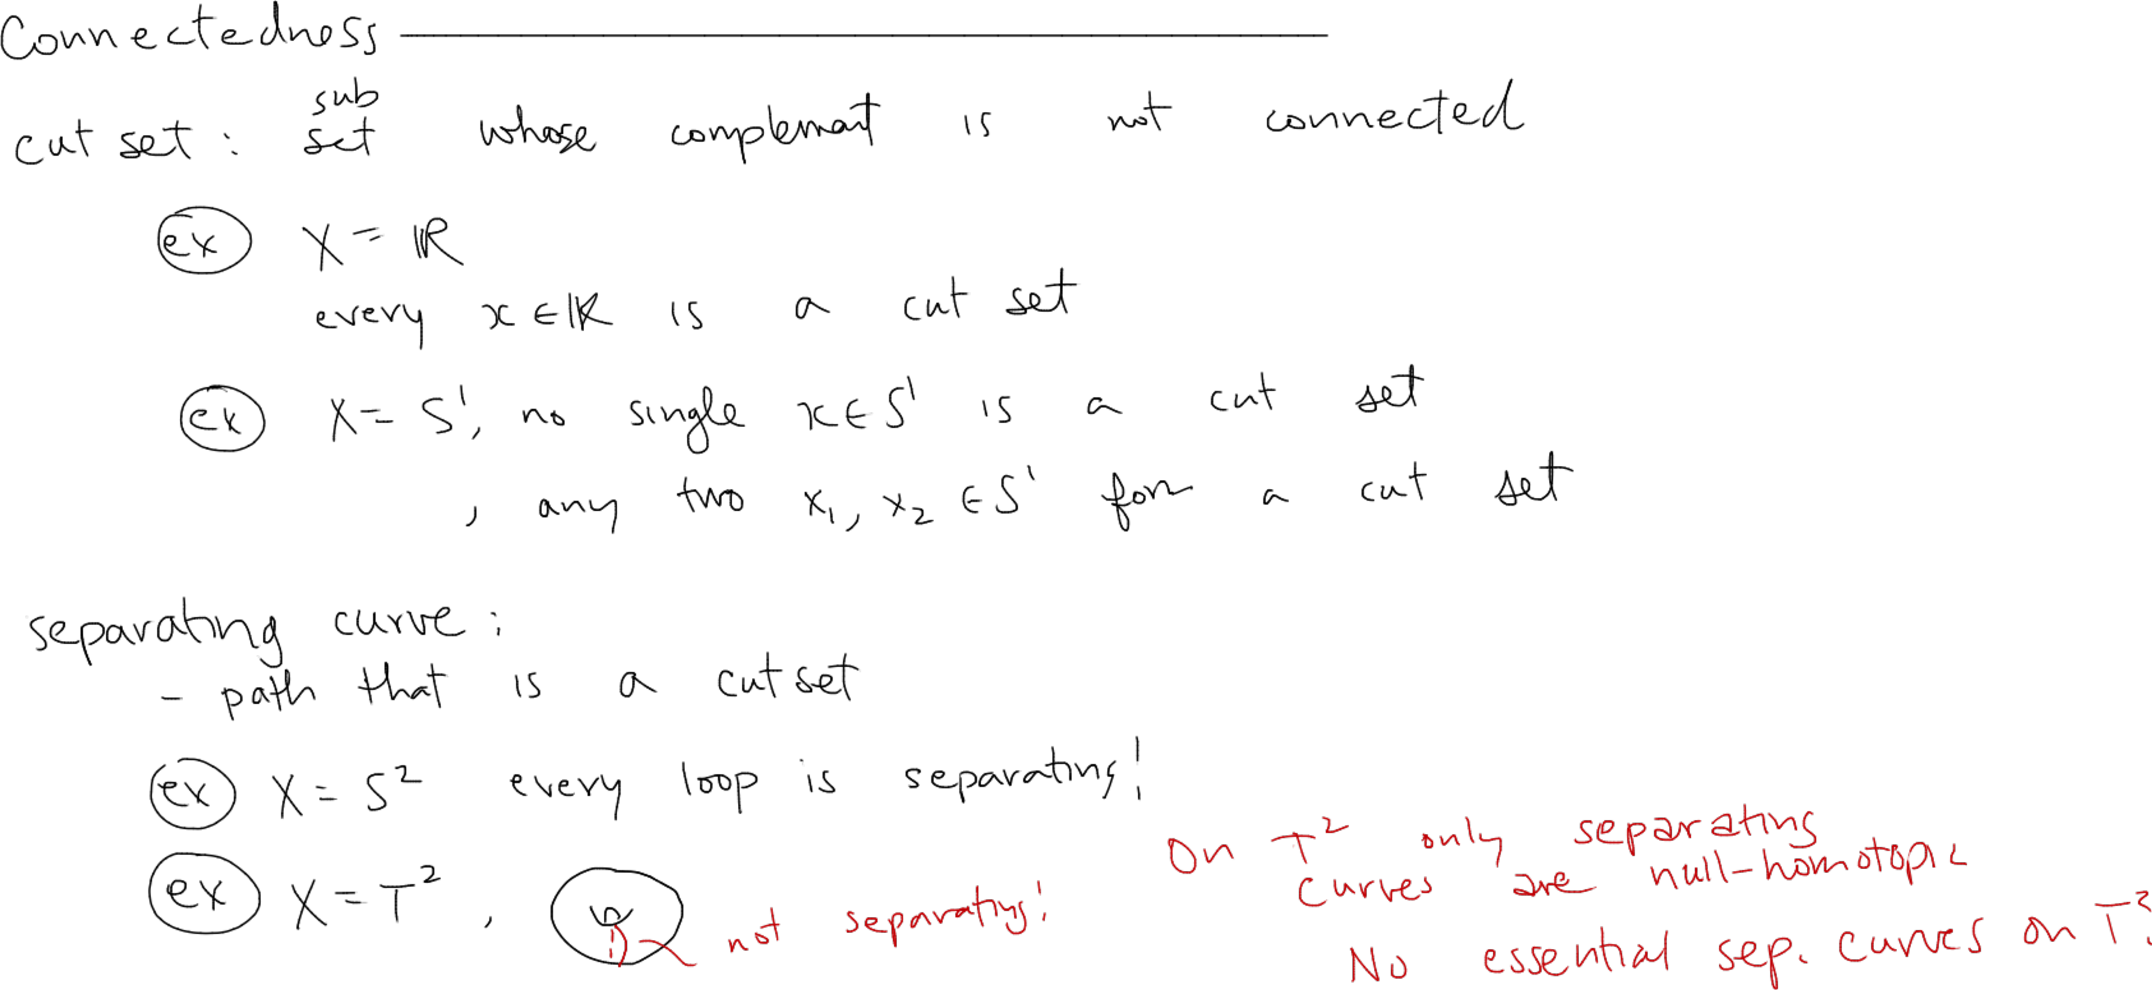 Connectedness
cut set : subset whose complement is not connected
ex X = ℝ
every x ∈ ℝ is a cut set
ex X = S¹, no single x ∈ S¹ is a cut set
, any two x₁, x₂ ∈ S¹ form a cut set
separating curve :
- path that is a cut set
ex X = S² every loop is separating!
ex X = T² ,
not separating!
On T² only separating
curves are null-homotopic
No essential sep. curves on T².